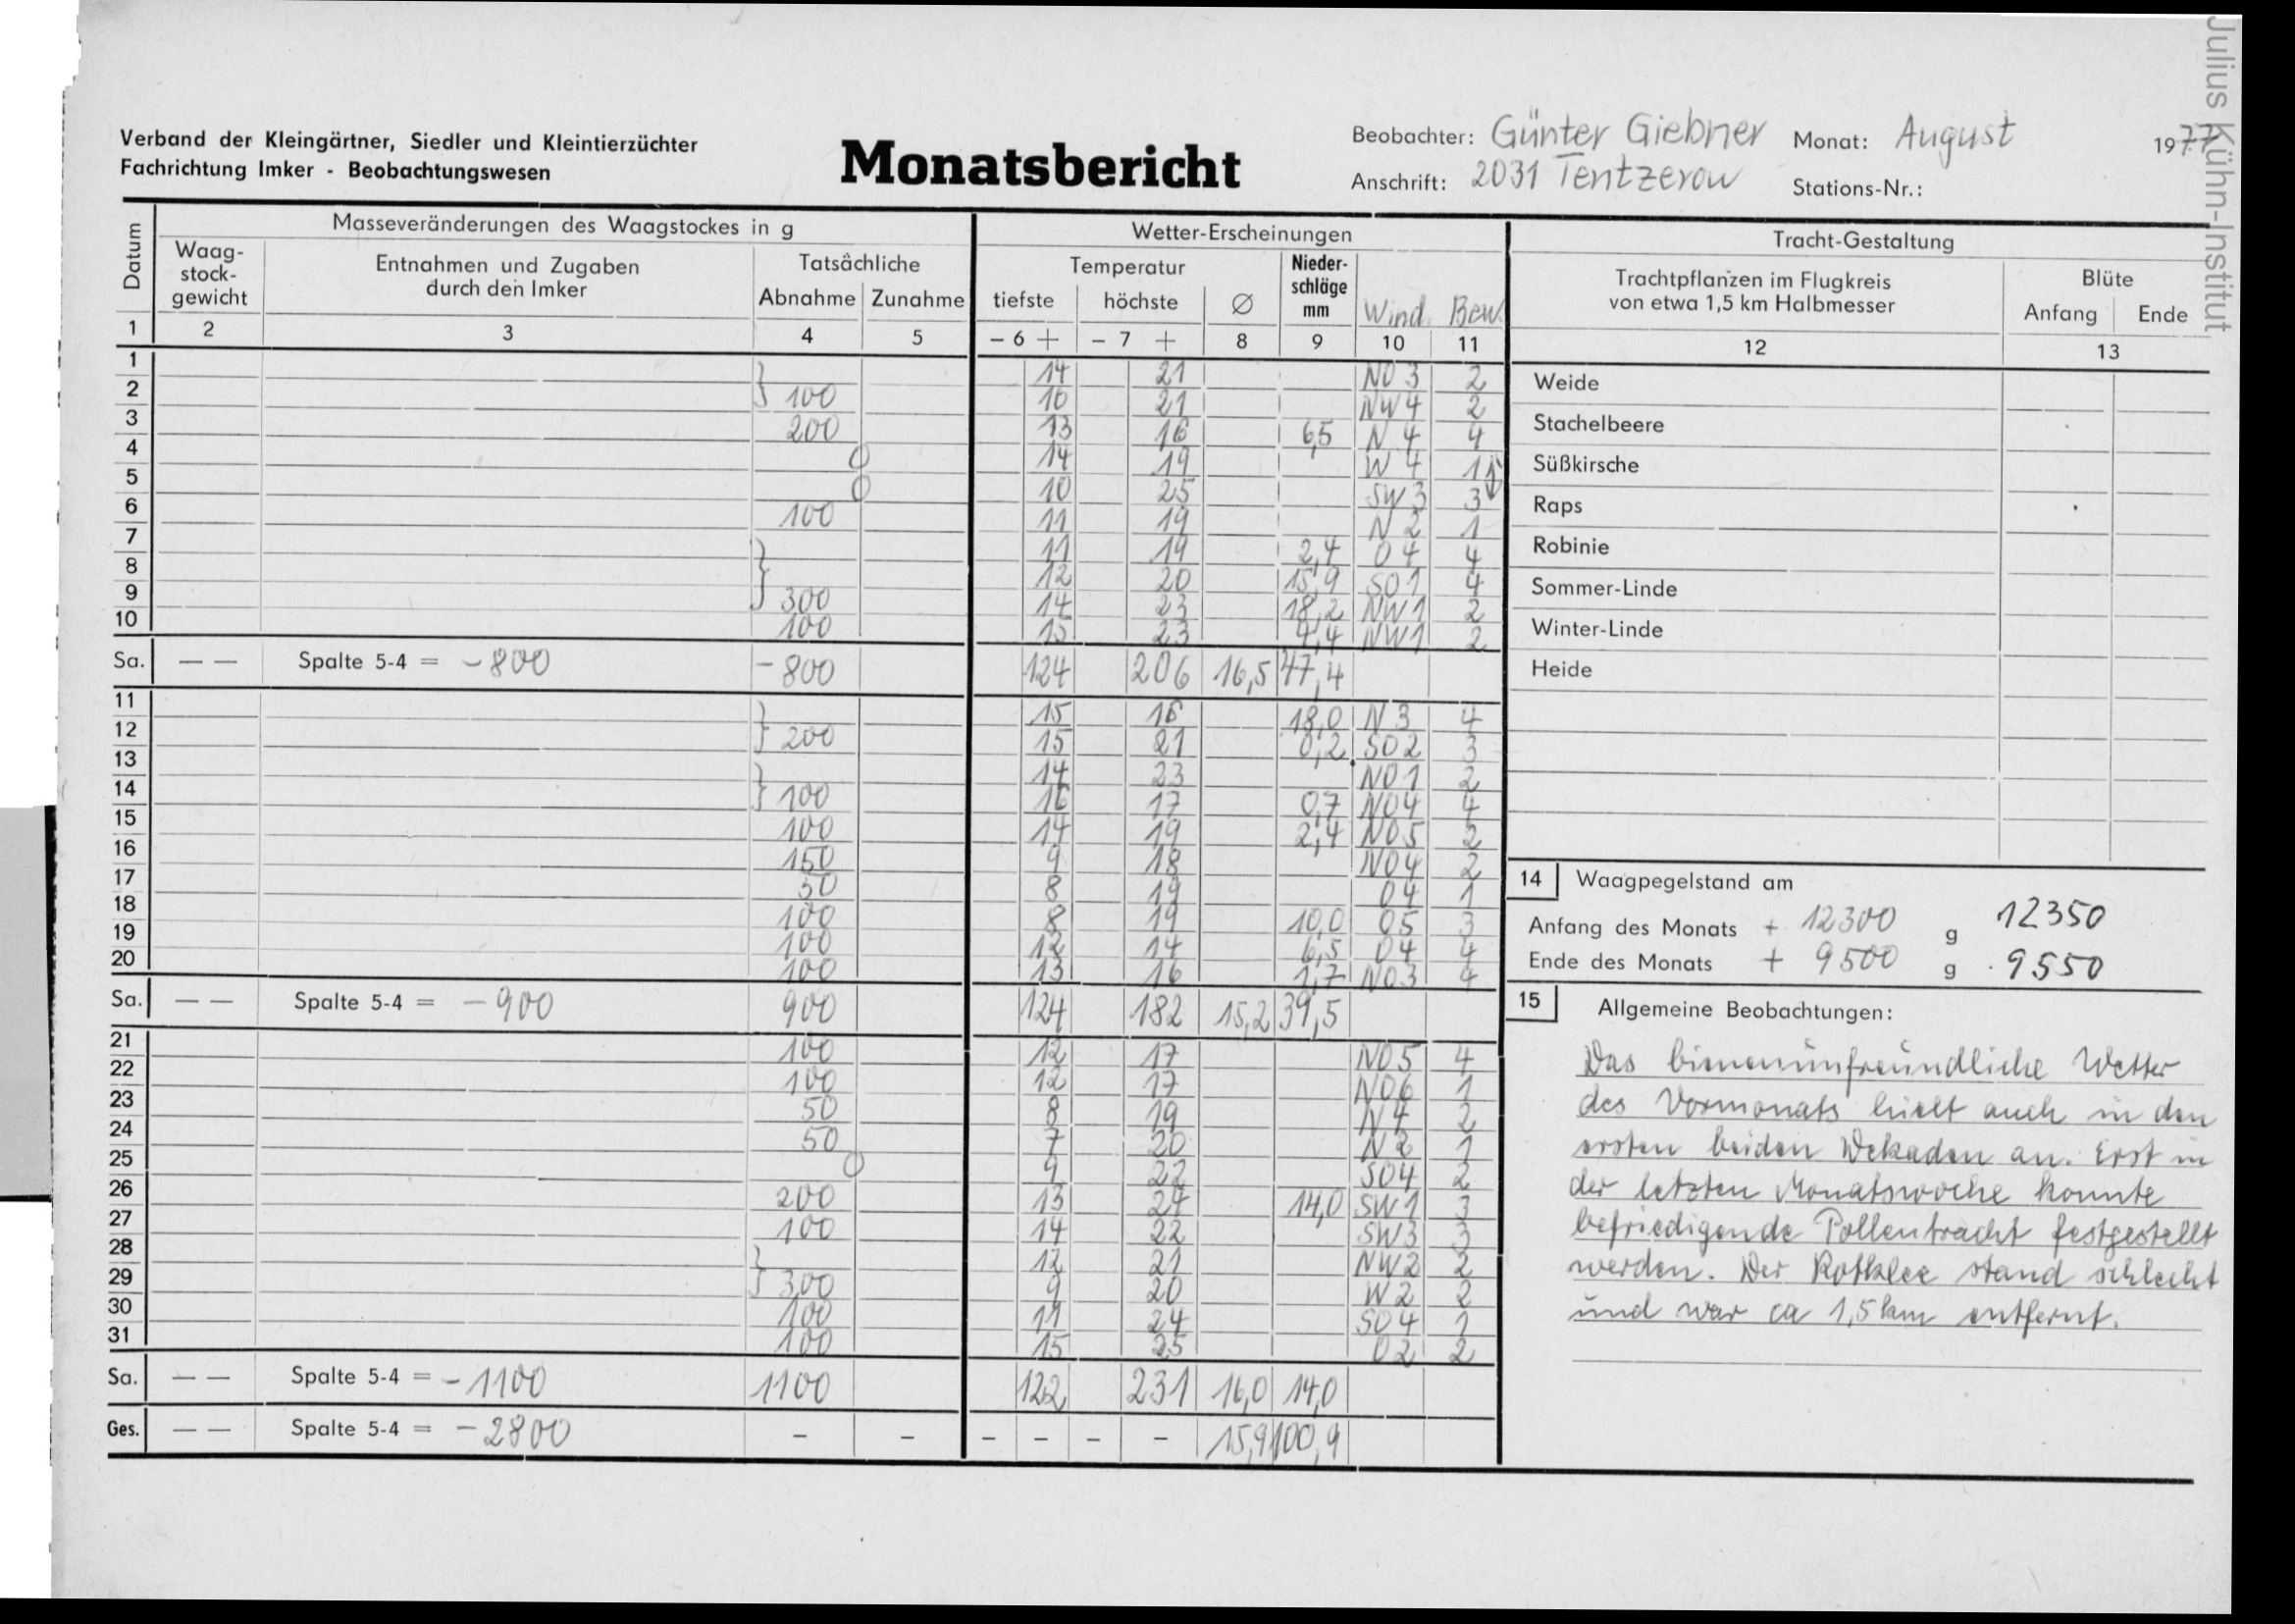 Verband der Kleingärtner, Siedler und Kleintierzüchter
Fachrichtung Imker - Beobachtungswesen
Monatsbericht
Beobachter: Günter Giebner Monat: August 1977
Anschrift: 2031 Tentzerow Stations-Nr.:
Julius Kühn-Institut
Datum
Masseveränderungen des Waagstockes in g
Waag-
stock-
gewicht
Entnahmen und Zugaben
durch den Imker
Tatsächliche
Abnahme Zunahme
Wetter-Erscheinungen
Temperatur
tiefste höchste ∅
Nieder-
schläge
mm
Wind. Bew.
1 2 3 4 5 - 6 + - 7 + 8 9 10 11
1 } 14 21 NO 3 2
2 100 16 21 NW 4 2
3 200 13 16 6,5 N 4 4
4 0 14 19 W 4 1
5 0 10 25 SW 3 3
6 100 11 19 N 2 1
7 } 11 19 2,4 O 4 4
8 12 20 15,9 SO 1 4
9 300 14 23 18,2 NW 1 2
10 100 15 23 4,4 NW 1 2
Sa. — — Spalte 5-4 = -800 -800 124 206 16,5 47,4
11 } 15 16 18,0 N 3 4
12 200 15 21 0,2 SO 2 3
13 } 14 23 NO 1 2
14 100 16 17 0,7 NO 4 4
15 100 14 19 2,4 NO 5 2
16 150 9 18 NO 4 2
17 50 8 19 O 4 1
18 100 8 19 10,0 O 5 3
19 100 12 14 6,5 O 4 4
20 100 13 16 1,7 NO 3 4
Sa. — — Spalte 5-4 = -900 900 124 182 15,2 39,5
21 100 12 17 NO 5 4
22 100 12 17 NO 6 1
23 50 8 19 N 4 2
24 50 7 20 N 2 1
25 0 9 22 SO 4 2
26 200 13 24 14,0 SW 1 3
27 100 14 22 SW 3 3
28 } 12 21 NW 2 2
29 300 9 20 W 2 2
30 100 11 24 SO 4 1
31 100 15 25 O 2 2
Sa. — — Spalte 5-4 = -1100 1100 122 231 16,0 14,0
Ges. — — Spalte 5-4 = -2800 – – – – – – 15,9 100,9
Tracht-Gestaltung
Trachtpflanzen im Flugkreis
von etwa 1,5 km Halbmesser
Blüte
Anfang Ende
12 13
Weide
Stachelbeere
Süßkirsche
Raps
Robinie
Sommer-Linde
Winter-Linde
Heide
14 Waagpegelstand am
Anfang des Monats + 12300 g 12350
Ende des Monats + 9500 g 9550
15 Allgemeine Beobachtungen:
Das bienenunfreundliche Wetter
des Vormonats hielt auch in den
ersten beiden Dekaden an. Erst in
der letzten Monatswoche konnte
befriedigende Pollentracht festgestellt
werden. Der Rotklee stand schlecht
und war ca 1,5 km entfernt.